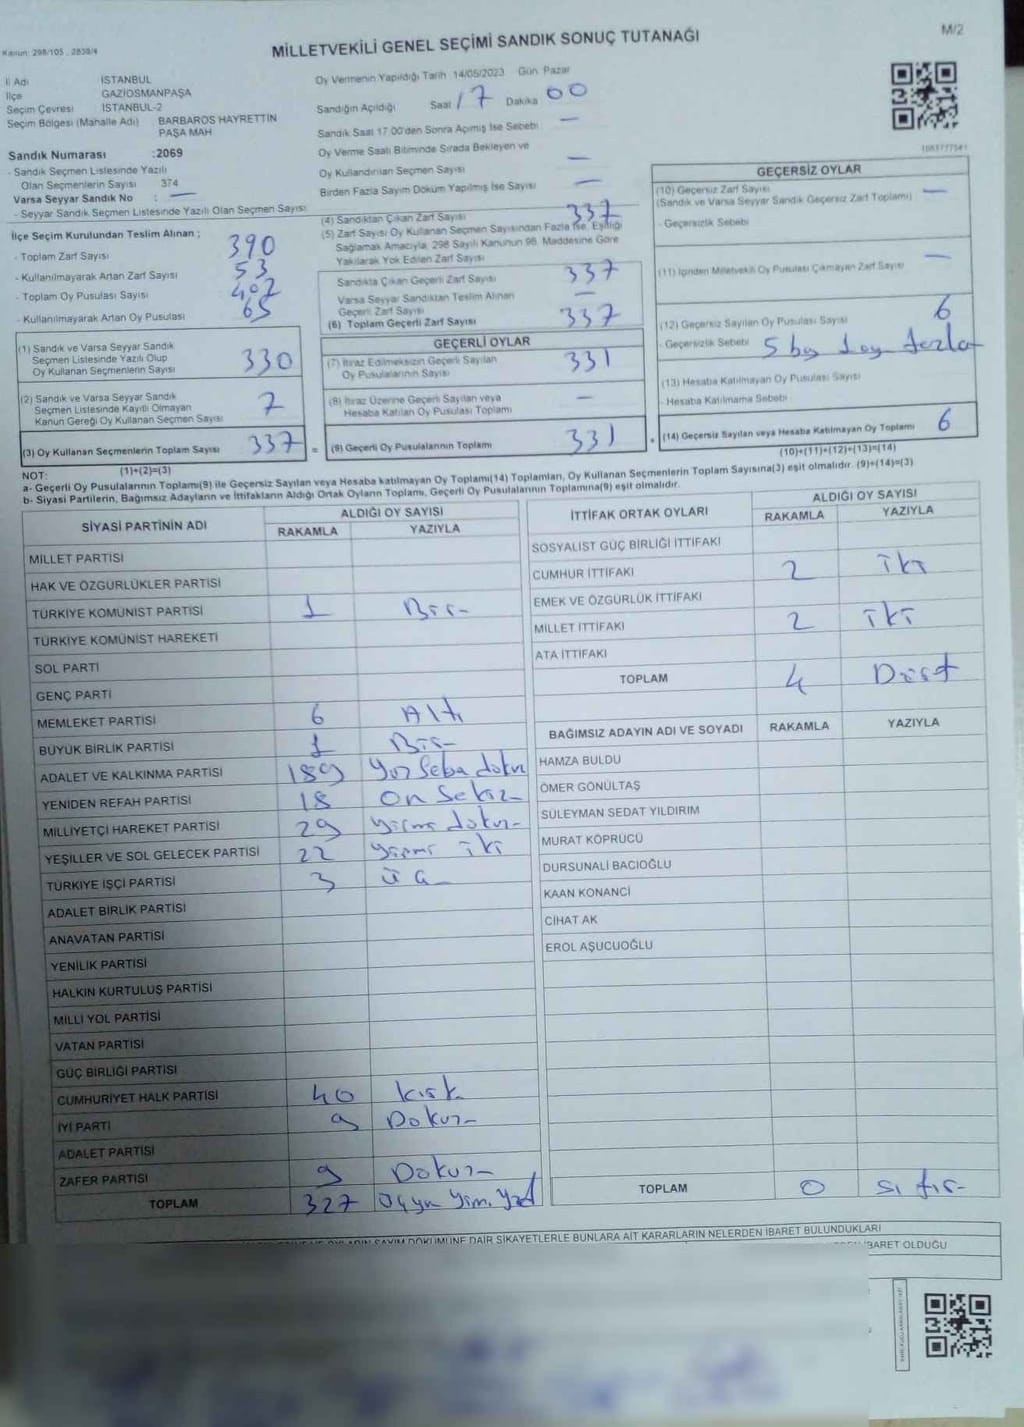 Kanun: 298/105 , 2839/4
MİLLETVEKİLİ GENEL SEÇİMİ SANDIK SONUÇ TUTANAĞI
M/2
İl Adı İSTANBUL
İlçe GAZİOSMANPAŞA
Seçim Çevresi İSTANBUL-2
Seçim Bölgesi (Mahalle Adı) BARBAROS HAYRETTİN PAŞA MAH
Sandık Numarası :2069
- Sandık Seçmen Listesinde Yazılı
Olan Seçmenlerin Sayısı 374
Varsa Seyyar Sandık No : —
- Seyyar Sandık Seçmen Listesinde Yazılı Olan Seçmen Sayısı:
İlçe Seçim Kurulundan Teslim Alınan ;
- Toplam Zarf Sayısı 390
- Kullanılmayarak Artan Zarf Sayısı 53
- Toplam Oy Pusulası Sayısı 402
- Kullanılmayarak Artan Oy Pusulası 65
(1) Sandık ve Varsa Seyyar Sandık
Seçmen Listesinde Yazılı Olup
Oy Kullanan Seçmenlerin Sayısı 330
(2) Sandık ve Varsa Seyyar Sandık
Seçmen Listesinde Kayıtlı Olmayan
Kanun Gereği Oy Kullanan Seçmen Sayısı 7
(3) Oy Kullanan Seçmenlerin Toplam Sayısı 337 =
(1)+(2)=(3)
Oy Vermenin Yapıldığı Tarih 14/05/2023 Gün Pazar
Sandığın Açıldığı Saat 17 Dakika 00
Sandık Saat 17.00'den Sonra Açımış İse Sebebi —
Oy Verme Saati Bitiminde Sırada Bekleyen ve
Oy Kullandırılan Seçmen Sayısı —
Birden Fazla Sayım Döküm Yapılmış İse Sayısı —
(4) Sandıktan Çıkan Zarf Sayısı 337
(5) Zarf Sayısı Oy Kullanan Seçmen Sayısından Fazla İse, Eşitliği
Sağlamak Amacıyla, 298 Sayılı Kanunun 98. Maddesine Göre
Yakılarak Yok Edilen Zarf Sayısı
Sandıkta Çıkan Geçerli Zarf Sayısı 337
Varsa Seyyar Sandıktan Teslim Alınan
Geçerli Zarf Sayısı —
(6) Toplam Geçerli Zarf Sayısı 337
GEÇERLİ OYLAR
(7) İtiraz Edilmeksizin Geçerli Sayılan
Oy Pusulalarının Sayısı 331
(8) İtiraz Üzerine Geçerli Sayılan veya
Hesaba Katılan Oy Pusulası Toplamı —
(9) Geçerli Oy Pusulalarının Toplamı 331 +
GEÇERSİZ OYLAR
(10) Geçersiz Zarf Sayısı
(Sandık ve Varsa Seyyar Sandık Geçersiz Zarf Toplamı) —
- Geçersizlik Sebebi
(11) İçinden Milletvekili Oy Pusulası Çıkmayan Zarf Sayısı —
(12) Geçersiz Sayılan Oy Pusulası Sayısı 6
- Geçersizlik Sebebi 5
(13) Hesaba Katılmayan Oy Pusulası Sayısı
- Hesaba Katılmama Sebebi
(14) Geçersiz Sayılan veya Hesaba Katılmayan Oy Toplamı 6
(10)+(11)+(12)+(13)=(14)
NOT:
a- Geçerli Oy Pusulalarının Toplamı(9) ile Geçersiz Sayılan veya Hesaba katılmayan Oy Toplamı(14) Toplamları, Oy Kullanan Seçmenlerin Toplam Sayısına(3) eşit olmalıdır. (9)+(14)=(3)
b- Siyasi Partilerin, Bağımsız Adayların ve İttifakların Aldığı Ortak Oyların Toplamı, Geçerli Oy Pusulalarının Toplamına(9) eşit olmalıdır.
SİYASİ PARTİNİN ADI ALDIĞI OY SAYISI
RAKAMLA YAZIYLA
MİLLET PARTİSİ
HAK VE ÖZGÜRLÜKLER PARTİSİ
TÜRKİYE KOMÜNİST PARTİSİ 1 Bir
TÜRKİYE KOMÜNİST HAREKETİ
SOL PARTİ
GENÇ PARTİ
MEMLEKET PARTİSİ 6 Altı
BÜYÜK BİRLİK PARTİSİ 1 Bir
ADALET VE KALKINMA PARTİSİ 189
YENİDEN REFAH PARTİSİ 18 On Sekiz
MİLLİYETÇİ HAREKET PARTİSİ 29 yirmi dokuz
YEŞİLLER VE SOL GELECEK PARTİSİ 22 yirmi iki
TÜRKİYE İŞÇİ PARTİSİ 3 üç
ADALET BİRLİK PARTİSİ
ANAVATAN PARTİSİ
YENİLİK PARTİSİ
HALKIN KURTULUŞ PARTİSİ
MİLLİ YOL PARTİSİ
VATAN PARTİSİ
GÜÇ BİRLİĞİ PARTİSİ
CUMHURİYET HALK PARTİSİ 40 kırk
İYİ PARTİ 9 Dokuz
ADALET PARTİSİ
ZAFER PARTİSİ 9 Dokuz
TOPLAM 327
İTTİFAK ORTAK OYLARI ALDIĞI OY SAYISI
RAKAMLA YAZIYLA
SOSYALİST GÜÇ BİRLİĞİ İTTİFAKI
CUMHUR İTTİFAKI 2 iki
EMEK VE ÖZGÜRLÜK İTTİFAKI
MİLLET İTTİFAKI 2 iki
ATA İTTİFAKI
TOPLAM 4 Dört
BAĞIMSIZ ADAYIN ADI VE SOYADI RAKAMLA YAZIYLA
HAMZA BULDU
ÖMER GÖNÜLTAŞ
SÜLEYMAN SEDAT YILDIRIM
MURAT KÖPRÜCÜ
DURSUNALİ BACIOĞLU
KAAN KONANCİ
CİHAT AK
EROL AŞUCUOĞLU
TOPLAM 0 sıfır
OYLARIN SAYIM DÖKÜMÜNE DAİR ŞİKAYETLERLE BUNLARA AİT KARARLARIN NELERDEN İBARET BULUNDUKLARI
İBARET OLDUĞU